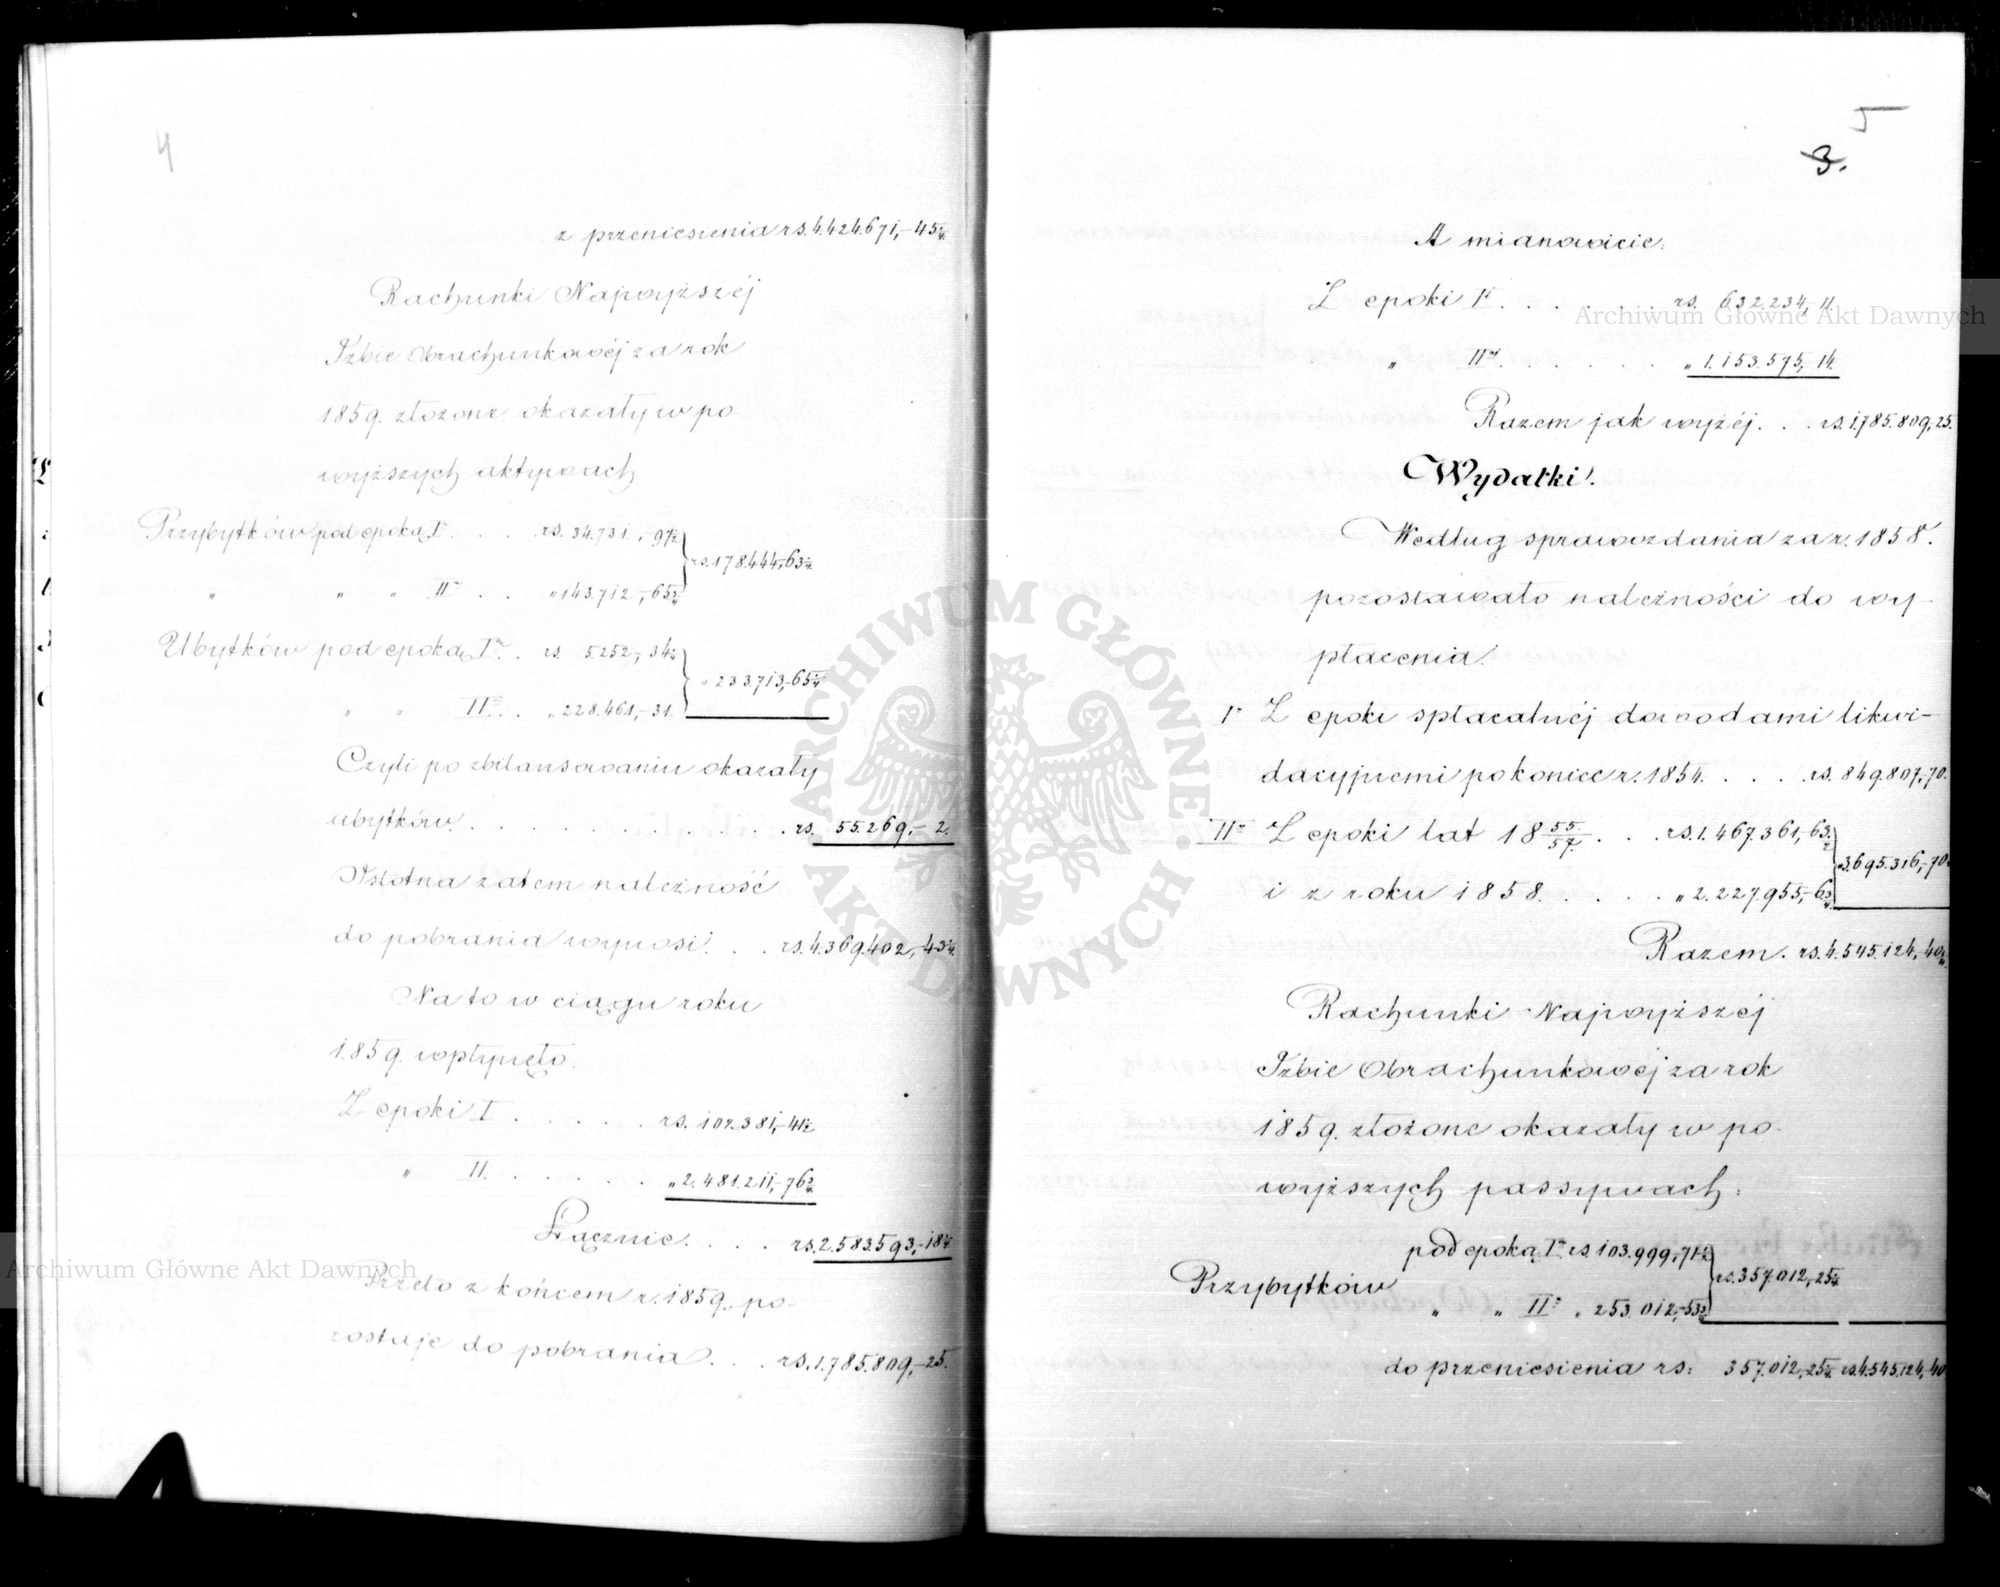 4
z przeniesienia rs. 4.424.671,-45 1/4.
Rachunki Najwyższéj
Izbie Obrachunkowéj za rok
1859. złożone okazały w po
wyższych aktywach
Przybytków pod epoką I. . . . rs. 34.731,-97 1/2
rs. 178.444,-63 1/4.
" " " II . . " 143.712,-65 3/4
Ubytków pod epoką I. . rs. 5252,-34 1/4
" 233.713,-65 1/4
" " II. . . " 228.461,-31.
Czyli po zbilansowaniu okazały
ubytków . . . . . . . . . . . rs. 55.269,-2.
Istotna zatem należność
do pobrania wynosi . . . rs. 4.369.402,-43 1/4.
Na to w ciągu roku
1859. wpłynęło:
Z epoki I . . . . . . rs. 102.381,-41 1/2
" II. . . . . . . " 2.481.211,-76 3/4
Łącznie. . . . rs. 2.583.593,-18 1/4.
Przeto z końcem r. 1859., po-
zostaje do pobrania. . . rs. 1.785.809,-25.
5
3.
A mianowicie:
Z epoki I . . . rs. 632.234,-11.
" II. . . . . . . " 1.153.575,-14.
Razem jak wyżéj. . . rs. 1.785.809,25.
Wydatki.
Według sprawozdania za r. 1858.
pozostawało należności do wy-
płacenia.
I Z epoki spłacalnéj dowodami likwi-
dacyjnemi po koniec r. 1854. . . . . rs. 849.807,-70.
II Z epoki lat 18 55/57. . . . rs. 1.467.361,-63 1/2
3.695.316,-70 1/4
i z roku 1858. . . . . . " 2.227.955,-6 3/4
Razem. rs. 4.545.124,-40 1/4.
Rachunki Najwyższéj
Izbie Obrachunkowéj za rok
1859. złożone okazały w po-
wyższych passywach:
pod epoką I rs. 103.999,-71 1/2
Przybytków
rs. 357.012,-25 1/4.
" " II " 253.012,-53 3/4
do przeniesienia rs: 357.012,-25 1/4. rs. 4.545.124,-40
Archiwum Główne Akt Dawnych
ARCHIWUM GŁÓWNE AKT DAWNYCH
Archiwum Główne Akt Dawnych